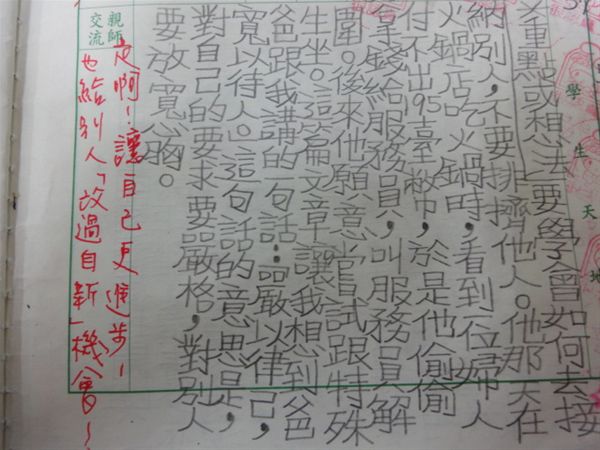 學生天地
重點或想法要學會如何去接
納別人,不要排擠他人。他那天在
火鍋店吃火鍋時,看到一位婦人
付不出195臺幣,於是他偷偷
拿錢給服務員,叫服務員解
圍。後來他願意嘗試跟特殊
生坐。這篇文章讓我想到爸
爸跟我講的一句話:嚴以律己,
寬以待人。這句話的意思是,
對自己的要求要嚴格,對別人
要放寬心胸。
親師
交流
定啊!讓自己更進步!
也給別人「改過自新」機會~